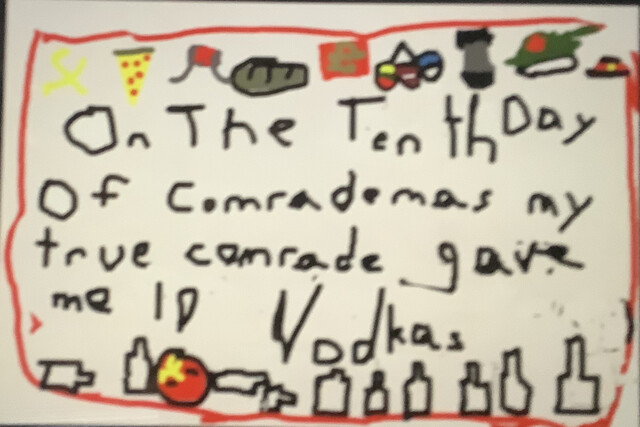 On The Tenth Day
Of Comrademas my
true comrade gave
me 10 Vodkas